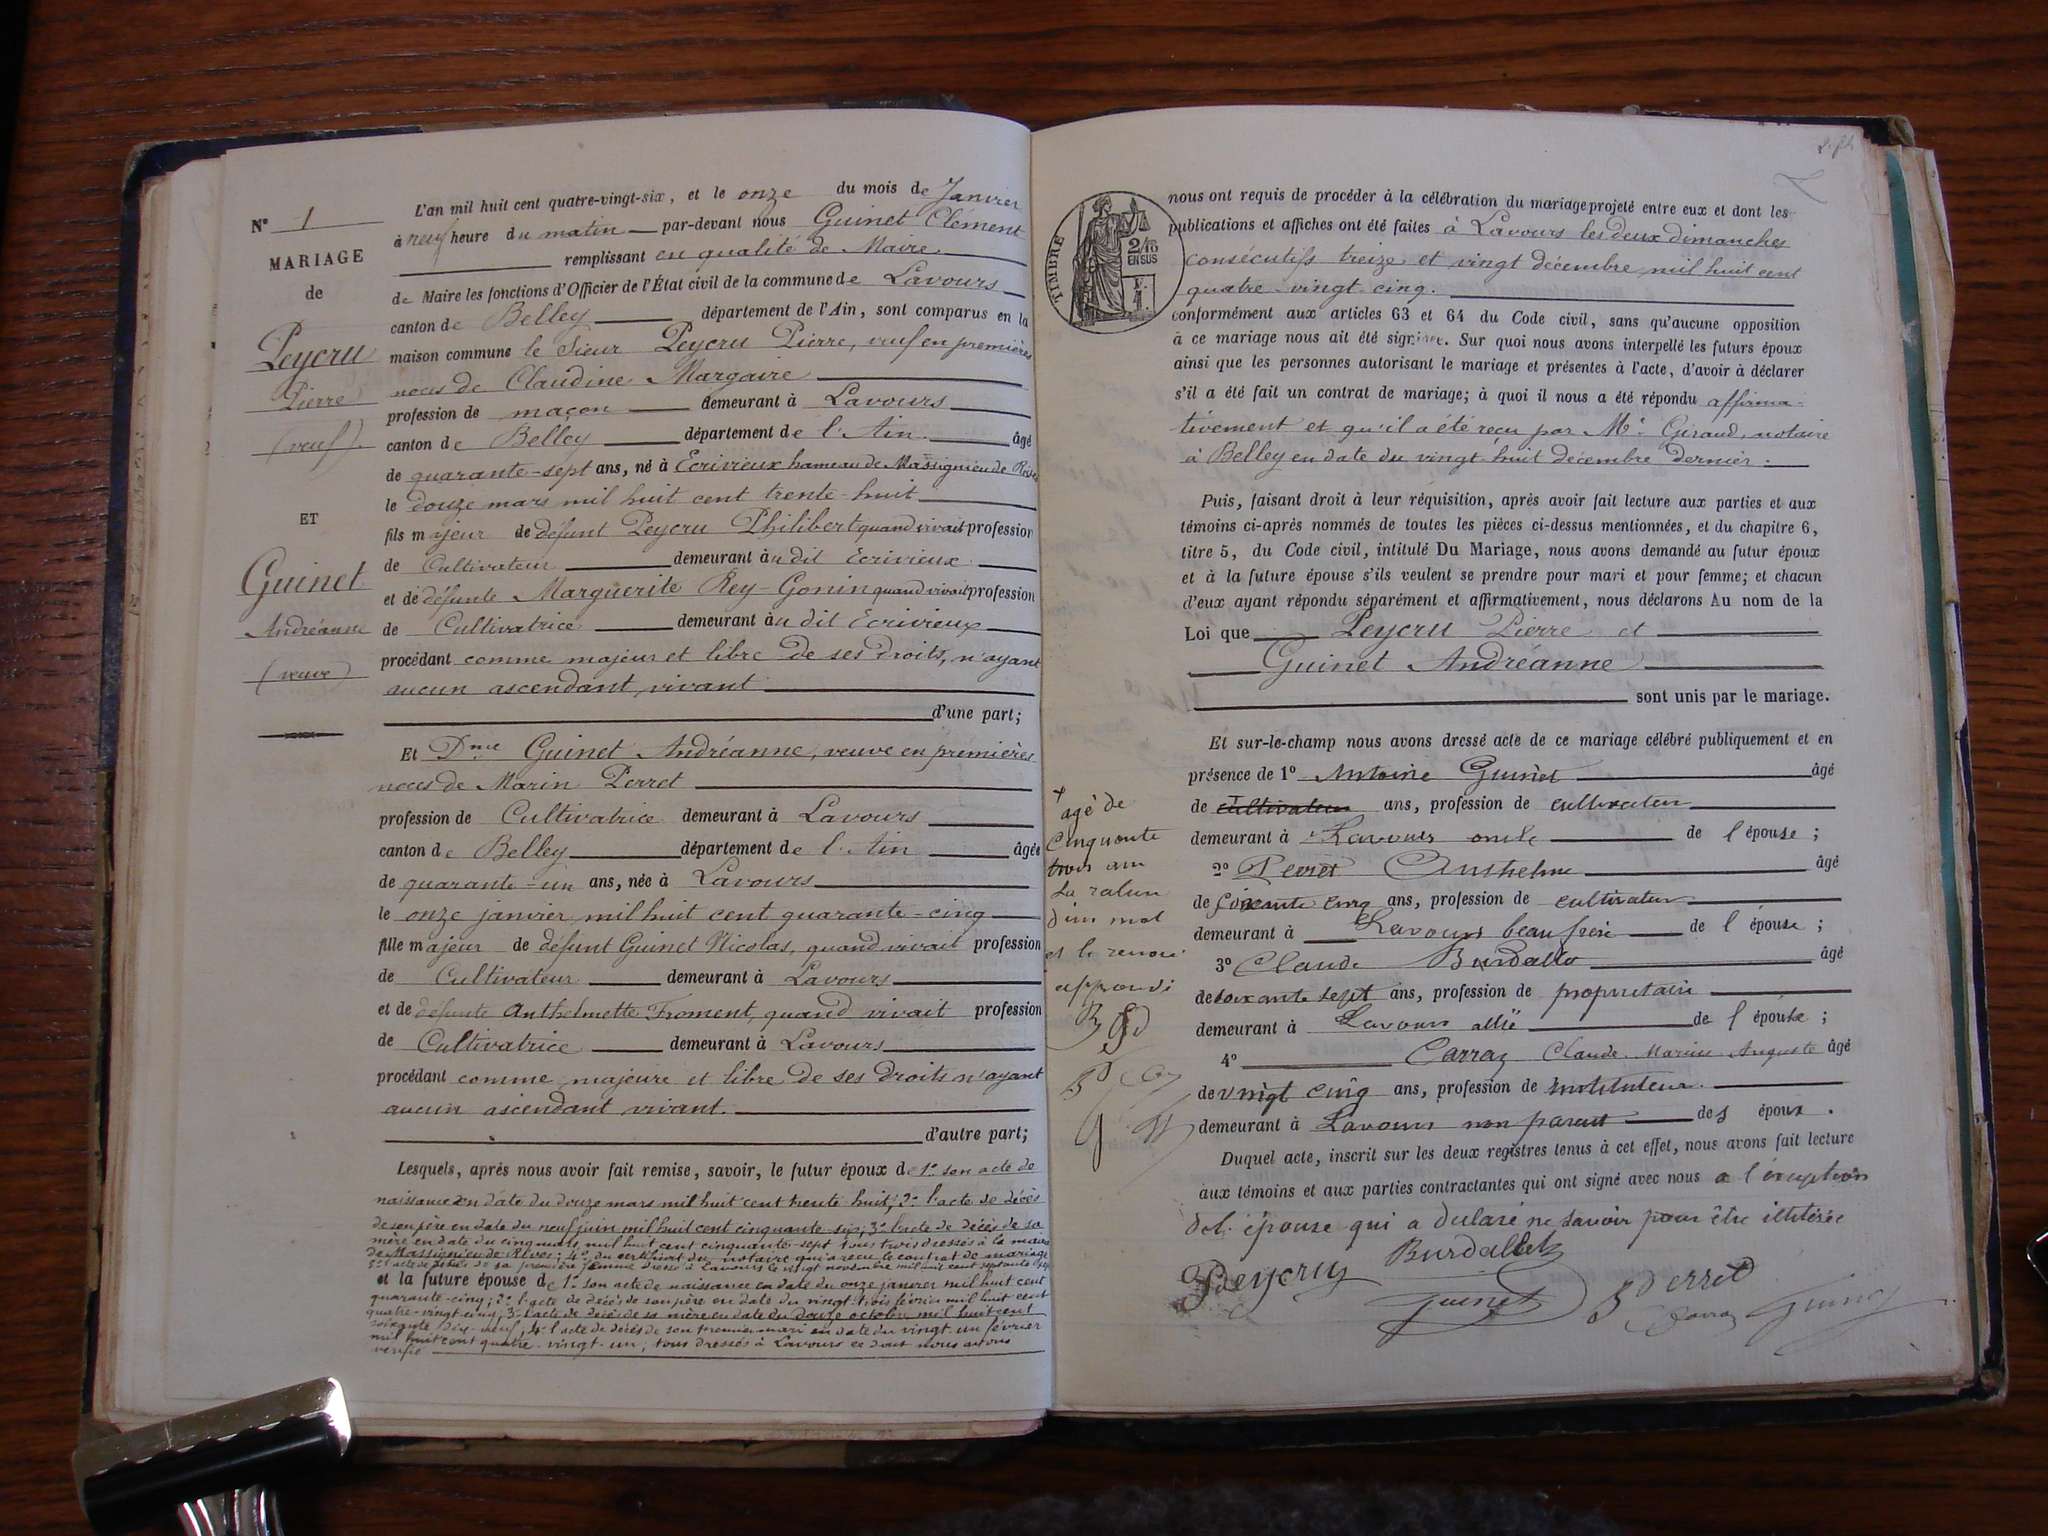 N° 1
MARIAGE
de
Peycru
Pierre
(veuf)
ET
Guinet
Andréanne
(veuve)
L'an mil huit cent quatre-vingt-six, et le onze du mois de Janvier
à neuf heure du matin par-devant nous Guinet Clément
remplissant en qualité de Maire
de Maire les fonctions d'Officier de l'État civil de la commune de Lavours
canton de Belley département de l'Ain, sont comparus en la
maison commune le Sieur Peycru Pierre, veuf en premières
noces de Claudine Margaire
profession de maçon demeurant à Lavours
canton de Belley département de l'Ain âgé
de quarante-sept ans, né à Ecrivieux hameau de Massignieu de Rives
le douze mars mil huit cent trente-huit
fils majeur de défunt Peycru Philibert quand vivait profession
de Cultivateur demeurant au dit Ecrivieux
et de défunte Marguerite Rey-Gonin quand vivait profession
de Cultivatrice demeurant au dit Ecrivieux
procédant comme majeur et libre de ses droits, n'ayant
aucun ascendant vivant
d'une part;
Et Dme Guinet Andréanne, veuve en premières
noces de Marin Perret
profession de Cultivatrice demeurant à Lavours
canton de Belley département de l'Ain âgée
de quarante-un ans, née à Lavours
le onze janvier mil huit cent quarante-cinq
fille majeur de défunt Guinet Nicolas, quand vivait profession
de Cultivateur demeurant à Lavours
et de défunte Anthelmette Froment, quand vivait profession
de Cultivatrice demeurant à Lavours
procédant comme majeure et libre de ses droits n'ayant
aucun ascendant vivant.
d'autre part;
Lesquels, après nous avoir fait remise, savoir, le futur époux de 1° son acte de
naissance en date du douze mars mil huit cent trente huit; 2° l'acte de décès
de son père en date du neuf juin mil huit cent cinquante-six; 3° l'acte de décès de sa
mère en date du cinq mars mil huit cent cinquante-sept tous trois dressés à la mairie
de Massignieu de Rives; 4° du certificat du notaire qui a reçu le contrat de mariage
5° l'acte de décès de sa première femme dressé à Lavours le vingt novembre mil huit cent septante
et la future épouse de 1° son acte de naissance en date du onze janvier mil huit cent
quarante-cinq; 2° l'acte de décès de son père en date du vingt-trois février mil huit cent
quatre-vingt-cinq; 3° l'acte de décès de sa mère en date du douze octobre mil huit cent
soixante dix-neuf; 4° l'acte de décès de son premier mari en date du vingt-un février
mil huit cent quatre-vingt-un, tous dressés à Lavours ce dont nous avons
vérifié
TIMBRE
2/10
EN SUS
nous ont requis de procéder à la célébration du mariage projeté entre eux et dont les
publications et affiches ont été faites à Lavours les deux dimanches
consécutifs treize et vingt décembre mil huit cent
quatre-vingt cinq.
conformément aux articles 63 et 64 du Code civil, sans qu'aucune opposition
à ce mariage nous ait été signifiée. Sur quoi nous avons interpellé les futurs époux
ainsi que les personnes autorisant le mariage et présentes à l'acte, d'avoir à déclarer
s'il a été fait un contrat de mariage; à quoi il nous a été répondu affirma-
tivement et qu'il a été reçu par Me Giraud, notaire
à Belley en date du vingt-huit décembre dernier.
Puis, faisant droit à leur réquisition, après avoir fait lecture aux parties et aux
témoins ci-après nommés de toutes les pièces ci-dessus mentionnées, et du chapitre 6,
titre 5, du Code civil, intitulé Du Mariage, nous avons demandé au futur époux
et à la future épouse s'ils veulent se prendre pour mari et pour femme; et chacun
d'eux ayant répondu séparément et affirmativement, nous déclarons Au nom de la
Loi que Peycru Pierre et
Guinet Andréanne
sont unis par le mariage.
Et sur-le-champ nous avons dressé acte de ce mariage célébré publiquement et en
présence de 1° Antoine Guinet âgé
de cultivateur ans, profession de cultivateur
demeurant à Lavours oncle de l'épouse;
2° Perret Anthelme âgé
de soixante cinq ans, profession de cultivateur
demeurant à Lavours beau frère de l'épouse;
3° Claude Burdallet âgé
de soixante sept ans, profession de propriétaire
demeurant à Lavours allié de l'épouse;
4° Carraz Claude Marius Auguste âgé
de vingt cinq ans, profession de instituteur.
demeurant à Lavours non parent des époux.
Duquel acte, inscrit sur les deux registres tenus à cet effet, nous avons fait lecture
aux témoins et aux parties contractantes qui ont signé avec nous à l'exception
de l'épouse qui a déclaré ne savoir pour être illitérée
Burdallet
Peycru
Guinet
Perret
Carraz
Guinet
+ agé de
cinquante
trois ans
La rature
d'un mot
et le renvoi
approuvé